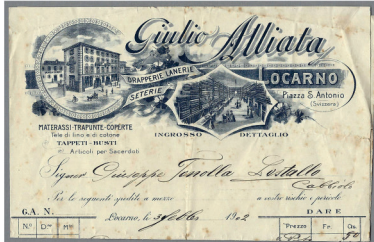 Giulio Alliata
DRAPPERIE LANERIE
SETERIE
LOCARNO
Piazza S. Antonio
(Svizzera)
MATERASSI-TRAPUNTE-COPERTE
Tele di lino e di cotone
TAPPETI-BUSTI
Articoli per Sacerdoti
INGROSSO DETTAGLIO
Signor Giuseppe Tonolla Lostallo
Cabbiolo
Per le seguenti spedite a mezzo a vostro rischio e pericolo
G.A. N. Locarno, li 3 febbr 1902 DARE
N.º D.ne M.tri Prezzo Fr. Cs.
50